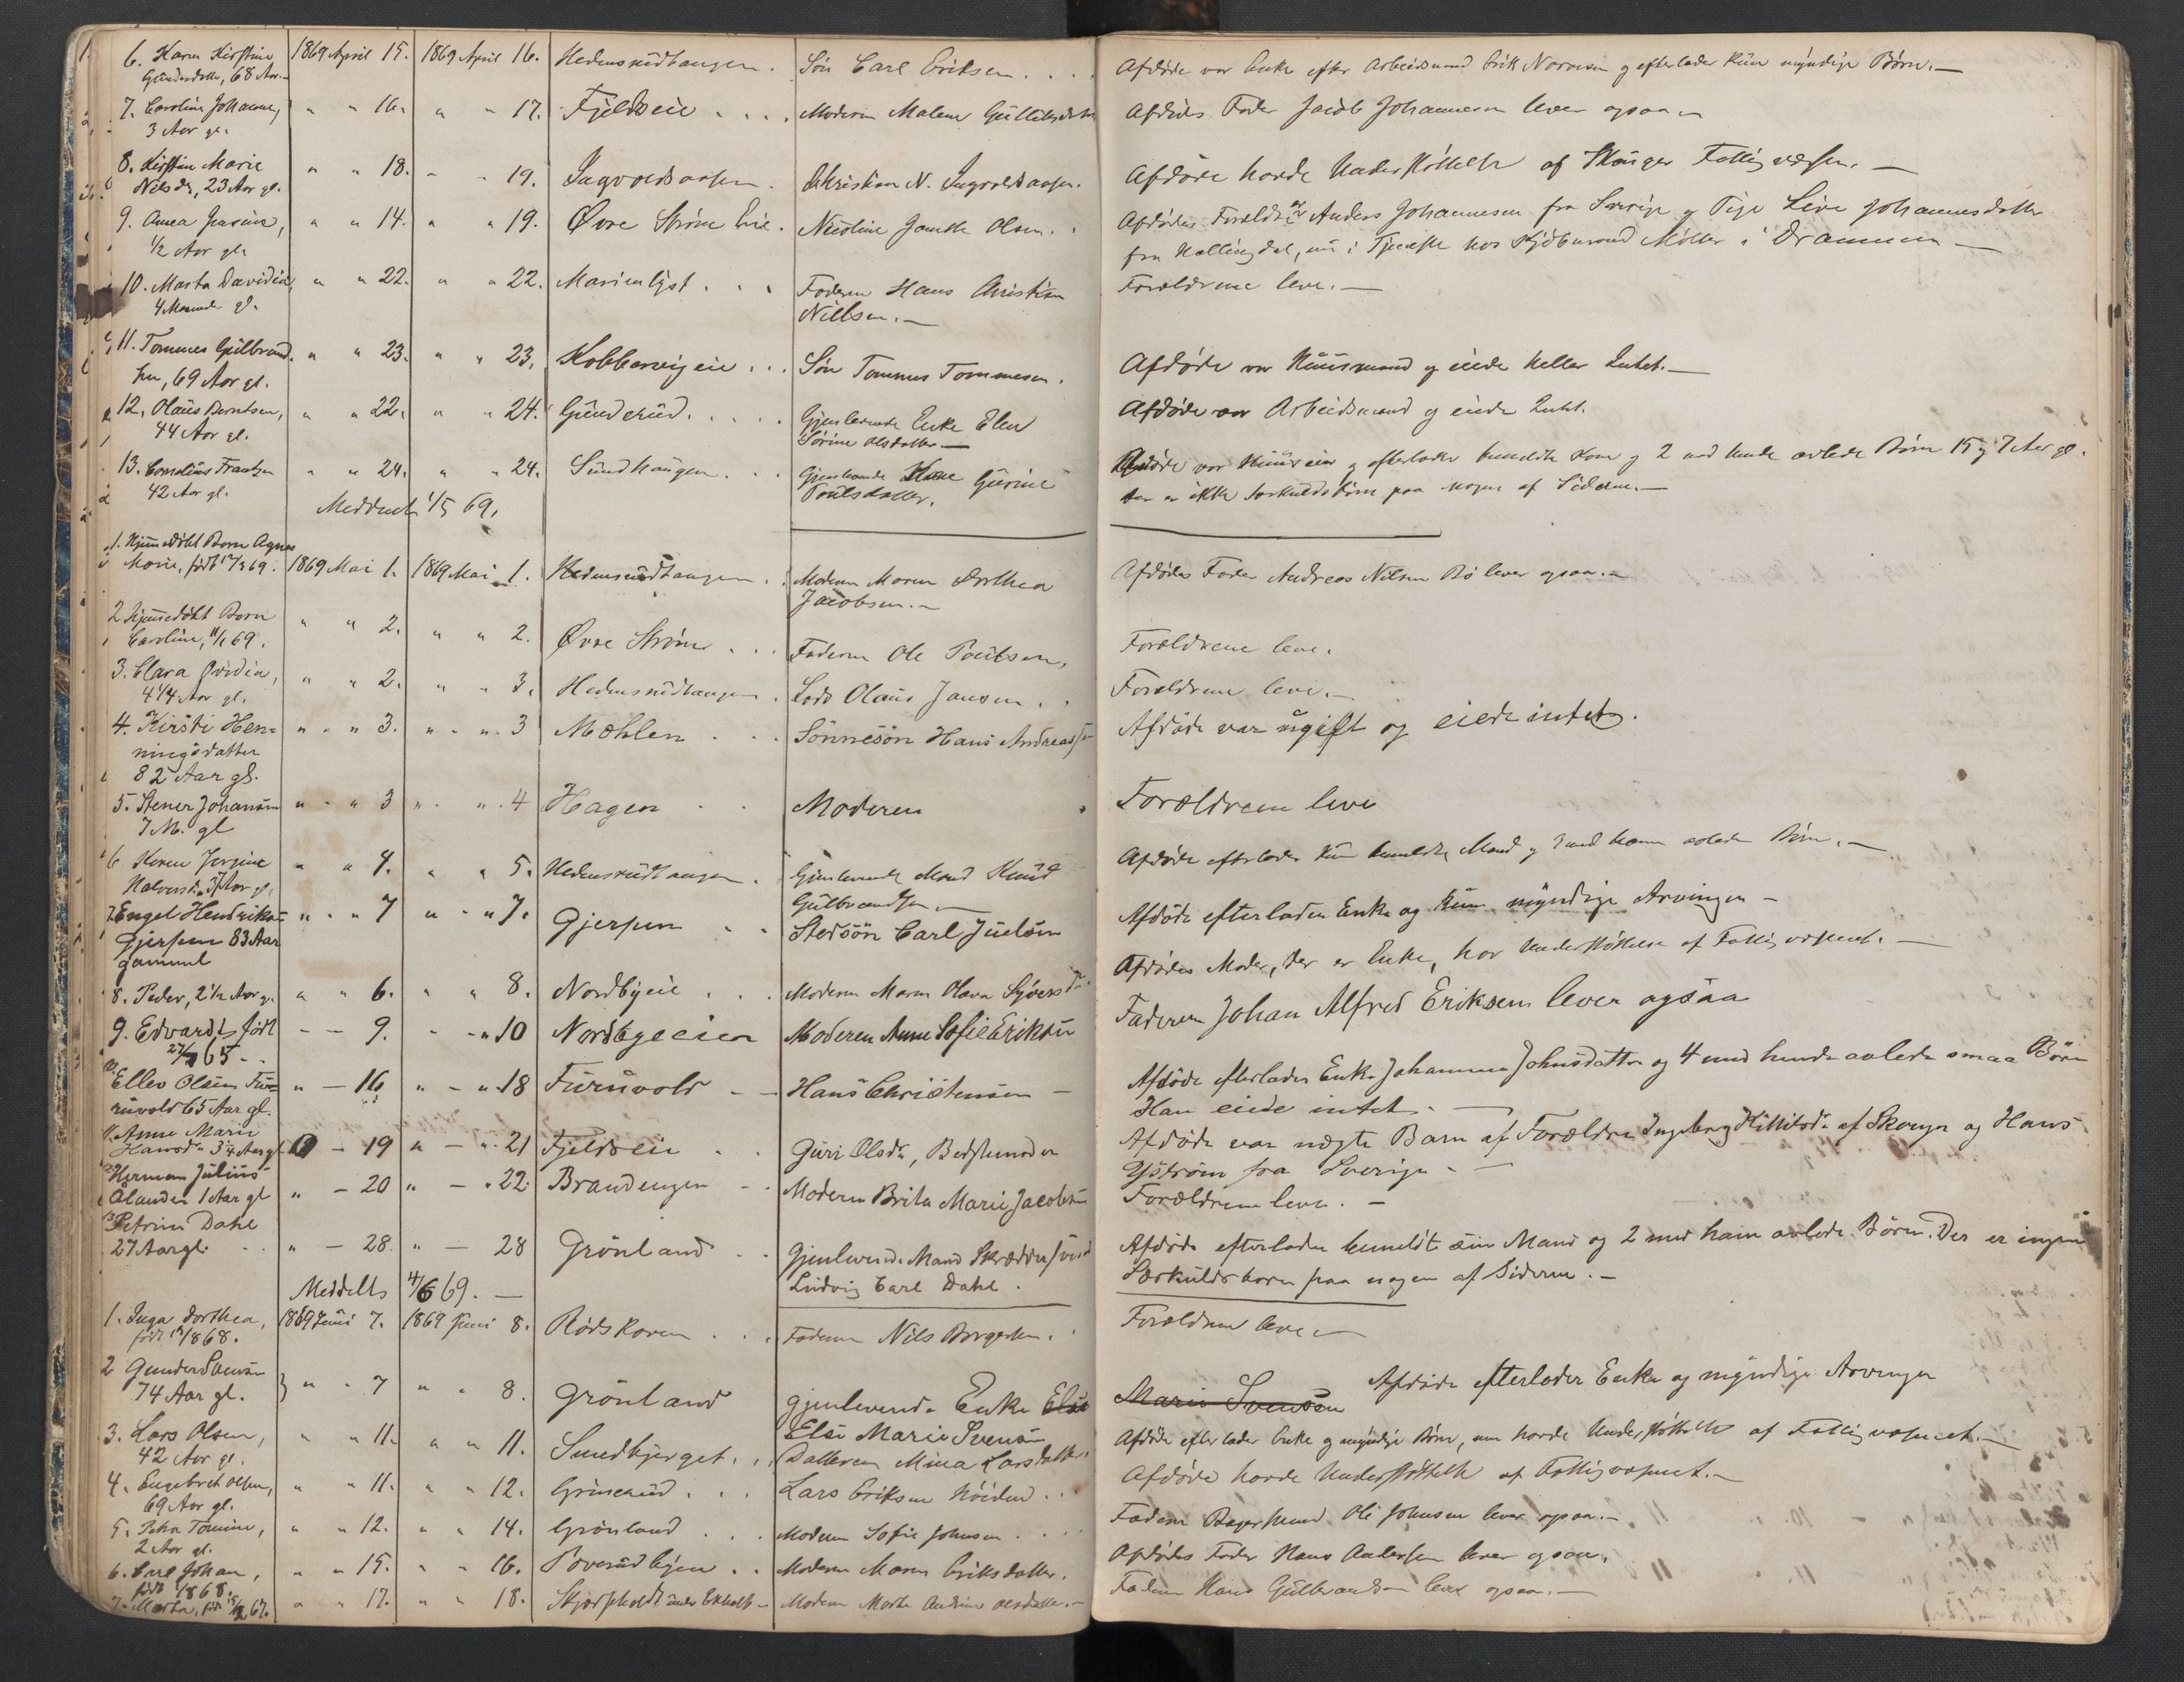 6. Karen Kirstine 1869 April 15. 1869 April 16. Hedensrudtangen. Søn Carl Eriksen . . . Afdøde var Enke efter Arbeidsmand Erik Narvesen og efterlader kun myndige Børn. —
Gundersdatter, 68 Aar. —
7. Caroline Johanne, " " 16. " " 17. Fjeldseie . . . . Moderen Malene Gulliksdatter Afdødes Fader Jacob Johannesen lever ogsaa —
3 Aar gl.
8. Kirstine Marie " " 18. " " 19. Ingvoldsaasen . Christian N. Ingvoldsaasen. Afdøde havde Understøttelse af Skouger Fattigvæsen. —
Nilsdr, 23 Aar gl.
9. Anna " " 14. " " 19. Øvre Strøm Eie. Nicoline Olsen. . Afdødes Forældre er Anders Johannesen fra Sverige og Pige Live Johannesdatter
1/2 Aar gl. fra Hallingdal, nu i Tjeneste hos Kjøbmand Møller i Drammen —
10. Marta Davidia, " " 22. " " 22. Marienlyst . . . Faderen Hans Christian Forældrene leve. —
4 Maaneder gl. Nillsen. —
11. Tommes Gulbrand- " " 23. " " 23. Kobbervigeie . . . Søn Tommes Tommesen. Afdøde var Huusmand og eiede heller Intet. —
sen, 69 Aar gl.
12. Olaus Berntsen, " " 22. " " 24. Gunderud. . . . . Gjenlevende Enke Elen Afdøde var Arbeidsmand og eiede Intet.
44 Aar gl. Sørine Olsdatter —
13. Cornelius Frantzen " " 24. " " 24. Sundhaugen. . . Gjenlevende Kone Gurine Afdøde var Huuseier og efterlader bemeldte Kone og 2 med hende avlede Børn 15 og 7 Aar gl.
42 Aar gl. Poulsdatter. der er ikke Særkuldsbørn paa nogen af Siderne. —
Meddeelt 1/5 69.
1. Hjemmedøbt Barn Agnes
Marie, født 69. 1869 Mai 1. 1869 Mai 1. Hedensrudtangen . . Moderen Maren Dorthea Afdødes Fader Andreas Nilsen Bø lever ogsaa. —
Jacobsen. —
2 Hjemmedøbt Barn " " 2. " " 2. Øvre Strøm . . . Faderen Ole Poulsen, Forældrene leve.
Caroline, 69.
3. Clara Ovidia, " " 2. " " 3. Hedensrudtangen. Lods Olaus Jansen . . Forældrene leve. —
4 1/4 Aar gl.
4. Kirsti Hen= " " 3. " " 3 Mæhlen . . . Sønnesøn Hans Andreassen Afdøde var ugift og eiede intet.
ningsdatter
82 Aar gl.
5. Stener Johansen " " 3 " " 4 Hagen . . Moderen Forældrene leve
7 M. gl
6. Karen Jørgine " " 4. " " 5. Hedensrudtangen . Gjenlevende Mand Knud Afdøde efterlader kun bemeldte Mand og 3 med ham avlede Børn. —
Halvorsdr 37 Aar gl. Gulbrandsen —
7 Engel Hendriksen " " 7 " " 7. Gjerpen . . Stedsøn Carl Juelsen Afdøde efterlader Enke og kun myndige Arvinger —
Gjerpen 83 Aar
gammel
8. Peder, 2 1/2 Aar gl. " " 6. " " 8. Nordbyeie . . . Moderen Maren Olava Syversdr. Afdødes Moder, der er Enke, har Understøttelse af Fattigvæsenet. —
9. Edvard født — — 9. — — " 10 Nordbyeeien Moderen Anne Sofie Eriksen Faderen Johan Alfred Eriksen lever ogsaa
65 . .
10. Ellev Olsen Fur- " — 16 " — " 18 Furuvold — — Hans Christensen — Afdøde efterlader Enke Johanne Johnsdatter og 4 med hende avlede smaa Børn
ruvold 65 Aar gl. Han eiede intet. —
11. Anne Marie
Hansdr 3 1/4 Aar gl " — 19 " — " 21 Fjeldseie . . Guri Olsdr, Bedstemoder Afdøde var uægte Barn af Forældre Ingeborg Kittilsdr af Skouger og Hans
Ystrøm fra Sverige. —
12 Herman Julius
Ålander 1 Aar gl " — 20 " — " 22. Brandengen — — Moderen Brita Marie Jacobsen Forældrene leve. —
13 Petrine Dahl
27 Aar gl. . . " — 28. " — 28 Grønland . . Gjenlevende Mand Skrædder Afdøde efterlader bemeldte sin Mand og 2 med ham avlede Børn. Der er ingen
Ludvig Carl Dahl. Særkuldsbørn paa nogen af Siderne. —
Meddelts 4/6 69. —
1. Inga Dorthea, 1869 Juni 7. 1869 Juni 8. Rødskoven . . . Faderen Nils Borgersen. . Forældrene leve —
født 1868.
2 Gunder Svensen } " " 7 " " 8. Grönland gjenlevende Enke Else Marie Svensen Afdøde efterlader Enke og myndige Arvinger
74 Aar gl. Else Marie Svensen
3. Lars Olsen, " " 11. " " 11. Smedbjerget. . . Datteren Mina Larsdatter. Afdøde efterlader Enke og myndige Børn, men havde Understøttelse af Fattigvæsenet. —
42 Aar gl.
4. Engebret Olsen, " " 11. " " 12. . . . Lars Eriksen . . Afdøde havde Understøttelse af Fattigvæsenet. —
69 Aar gl.
5. Tomine, " " 12. " " 14. Grönland . . . Moderen Sofie Johnsen . . . . Faderen Ole Johnsen lever ogsaa. —
2 Aar gl.
6. Carl Johan, " " 15. " " 16. Poverudbyen . . Moderen Maren Eriksdatter. Afdødes Fader Hans Andersen lever ogsaa.
født 1868.
7. Marta, født 67. " " 17. " " 18. under — Moderen Marte Andrine Olsdatter. — Faderen Hans Gulbrandsen lever ogsaa. —